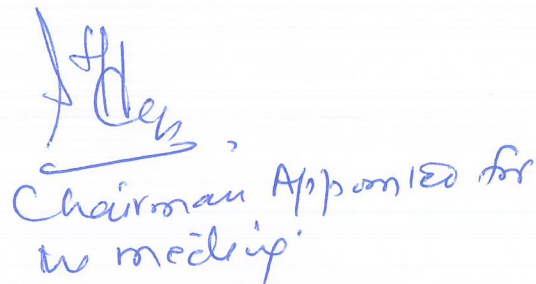 Chairman Appointed for
the meeting.